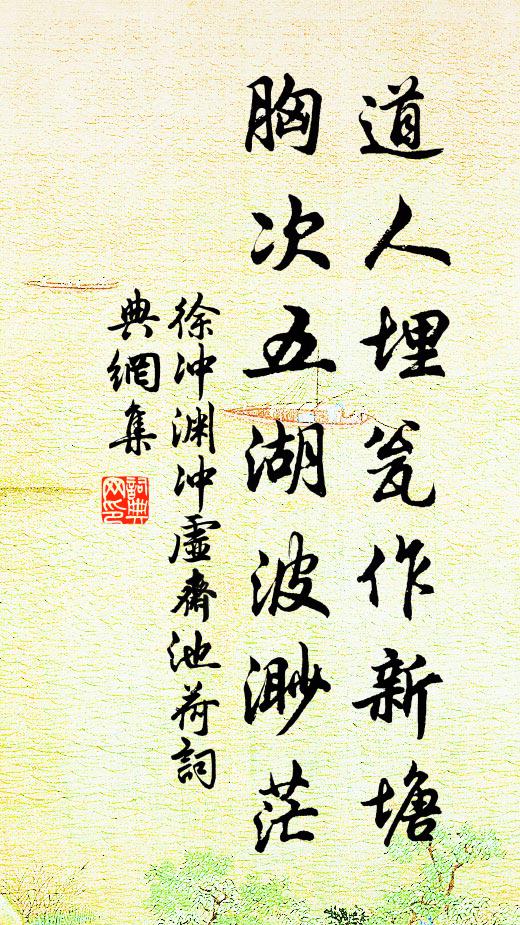 道人埋瓮作新塘
胸次五湖波渺茫
徐冲渊冲虛齋池荷詞
典網集
詞典
网印